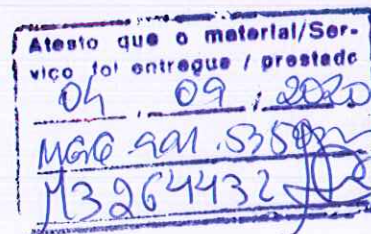 Atesto que o material/Ser-
viço foi entregue / prestado
04 , 09 , 2020
M3264432